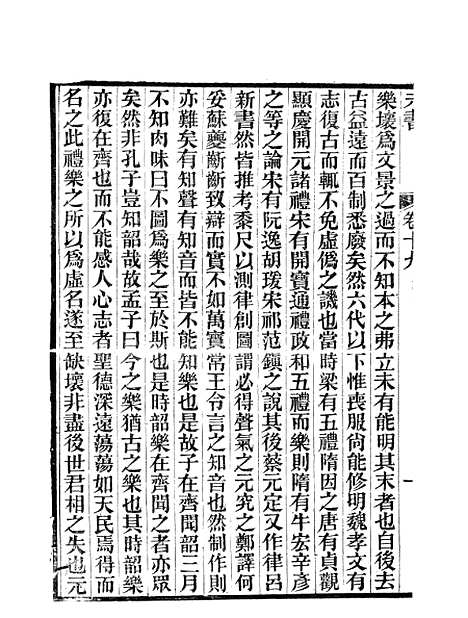 元書 卷十九 一
樂壞爲文景之過而不知本之弗立未有能明其末者也自後去
古益遠而百制悉廢矣然六代以下惟喪服尙能修明魏孝文有
志復古而輒不免虛僞之譏也當時梁有五禮隋因之唐有貞觀
顯慶開元諸禮宋有開寶通禮政和五禮而樂則隋有牛宏辛彥
之等之論宋有阮逸胡瑗宋祁范鎭之說其後蔡元定又作律呂
新書然皆推考黍尺以測律創圖謂必得聲氣之元究之鄭譯何
妥蘇夔齗齗致辯而實不如萬寶常王令言之知音也然制作則
亦難矣有知音而皆不能知樂也是故子在齊聞韶三月
不知肉味曰不圖爲樂之至於斯也是時韶樂在齊聞之者亦眾
矣然非孔子豈知韶哉故孟子曰今之樂猶古之樂也其時韶樂
亦復在齊也而不能感人心志者聖德深遠蕩蕩如天民焉得而
名之此禮樂之所以爲虛名遂至缺壞非盡後世君相之失也元